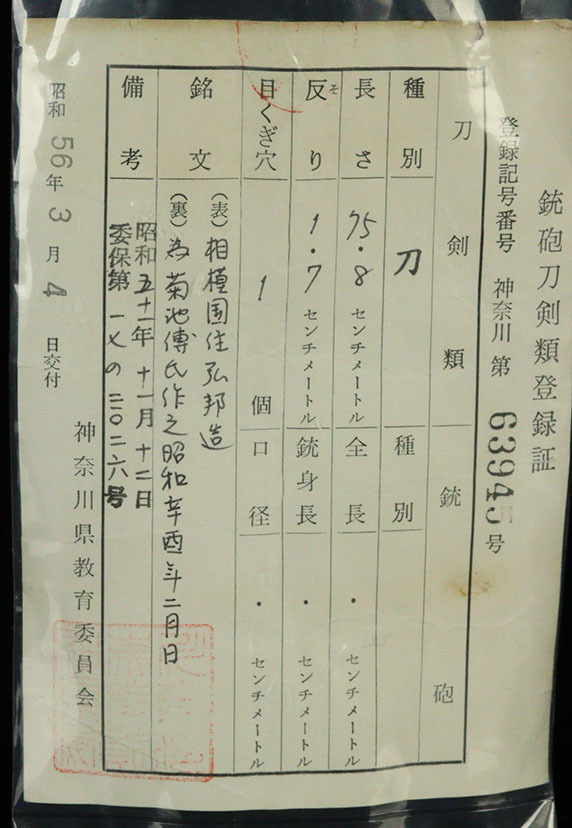 銃砲刀剣類登録証
登録記号番号 神奈川 第 63945 号
刀剣類 銃砲
種別 刀 種別
長さ 75.8 センチメートル 全長 ・ センチメートル
反り そ 1.7 センチメートル 銃身長 ・ センチメートル
目くぎ穴 1 個 口径 ・ センチメートル
銘文 (表) 相模国住弘邦造
(裏) 為菊池傳氏作之昭和辛酉年二月日
備考 昭和五十一年十一月十二日
委保第一七の二〇二六号
昭和 56 年 3 月 4 日交付
神奈川県教育委員会